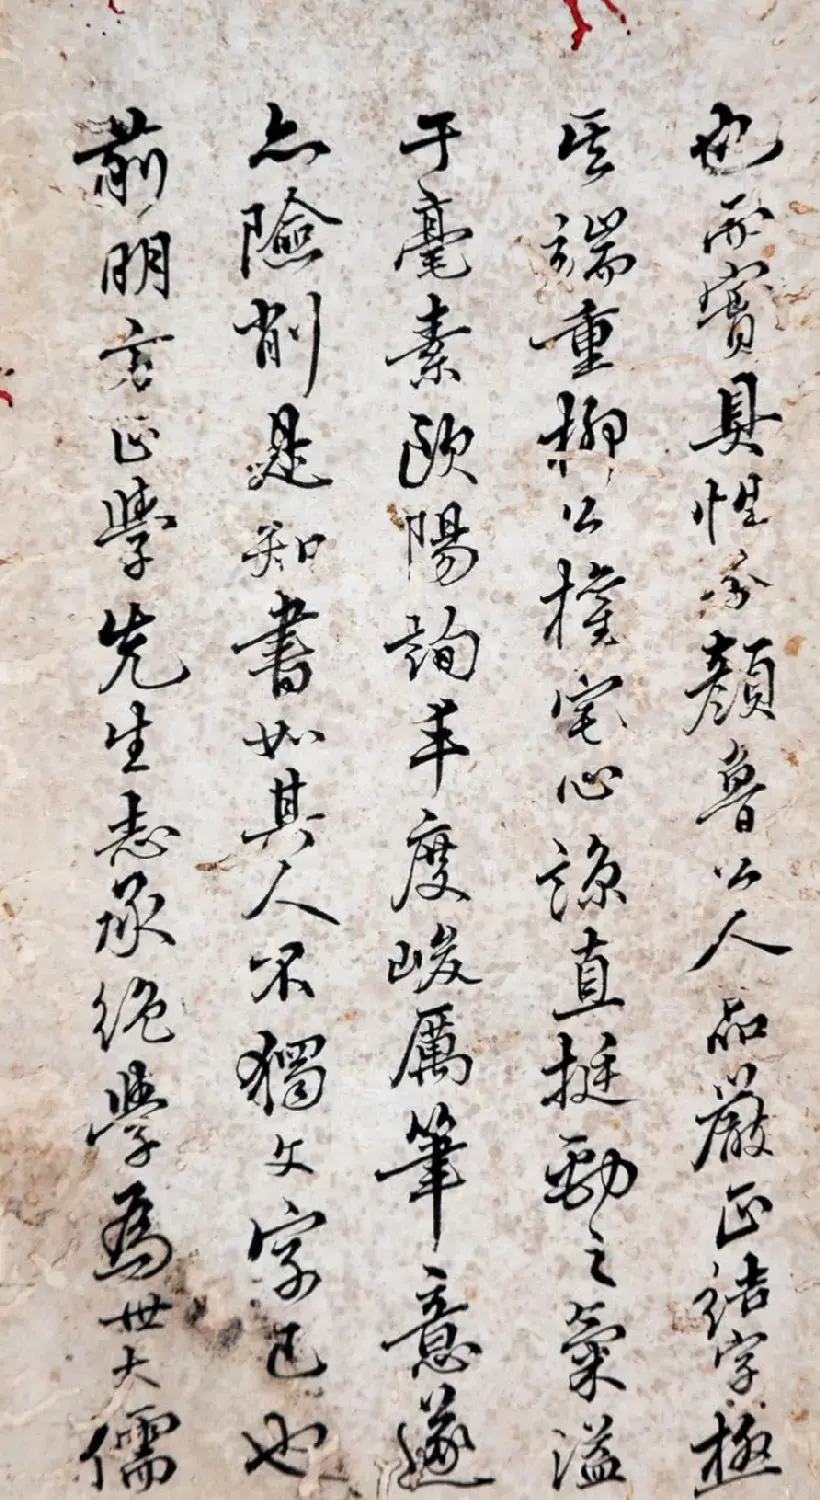 也而實具性分顏魯公人品嚴正結字極
其端重柳公權宅心諒直挺勁之氣溢
于毫素歐陽詢丰度峻厲筆意遂
亦險削是知書如其人不獨文字已也
前明方正學先生志承絶學爲世大儒